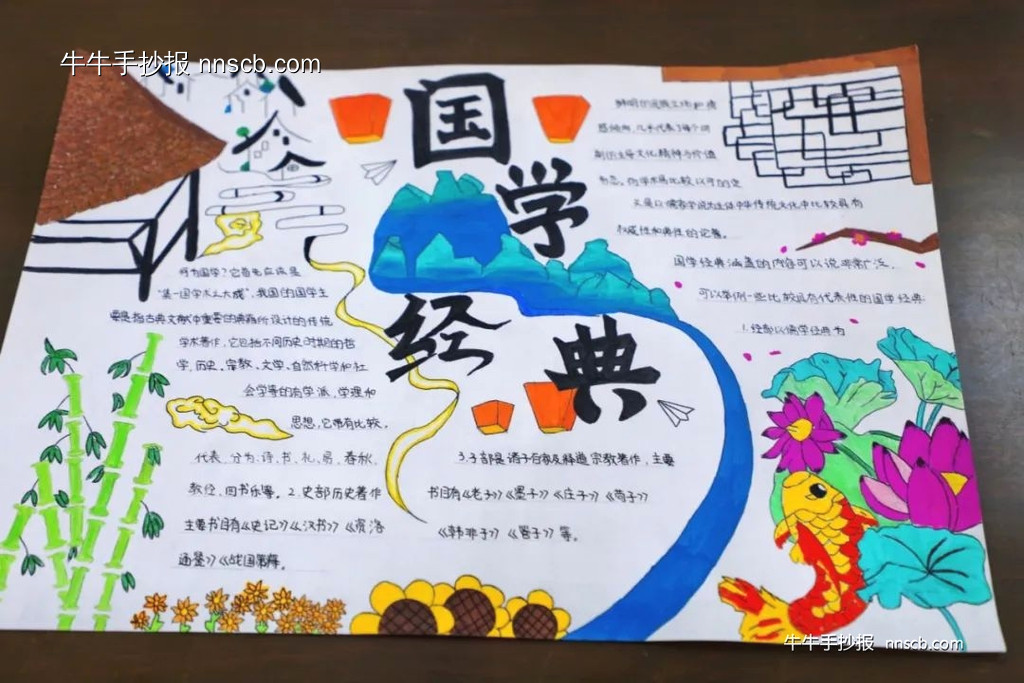 牛牛手抄报 nnscb.com
国学经典
鲜明的民族文化和情
代表了每个时
期的主导文化精神与价值
又是以儒家学说为主体中华传统文化中比较具有
权威性和典性的论著。
国学经典涵盖的内容可以说非常广泛,
可以举例一些比较具有代表性的国学经典
1.经部以儒学经典为
何为国学?它首先应该是
"集一国学术之大成",我国的国学主
要是指古典文献中重要的典籍所设计的传统
学术著作,它包括不同历史时期的哲
学,历史,宗教,文学,自然科学和社
会学等的有学派、学理和
思想,它带有比较,
代表、分为:诗、书、礼、易、春秋、
教经、四书乐等。2.史部历史著作
主要书目有《史记》《汉书》《资治
通鉴》《战国策等。
3.子部是诸子百部及释道宗教著作,主要
书目有《老子》《墨子》《庄子》《荀子》
《韩非子》《管子》等。
牛牛手抄报 nnscb.com